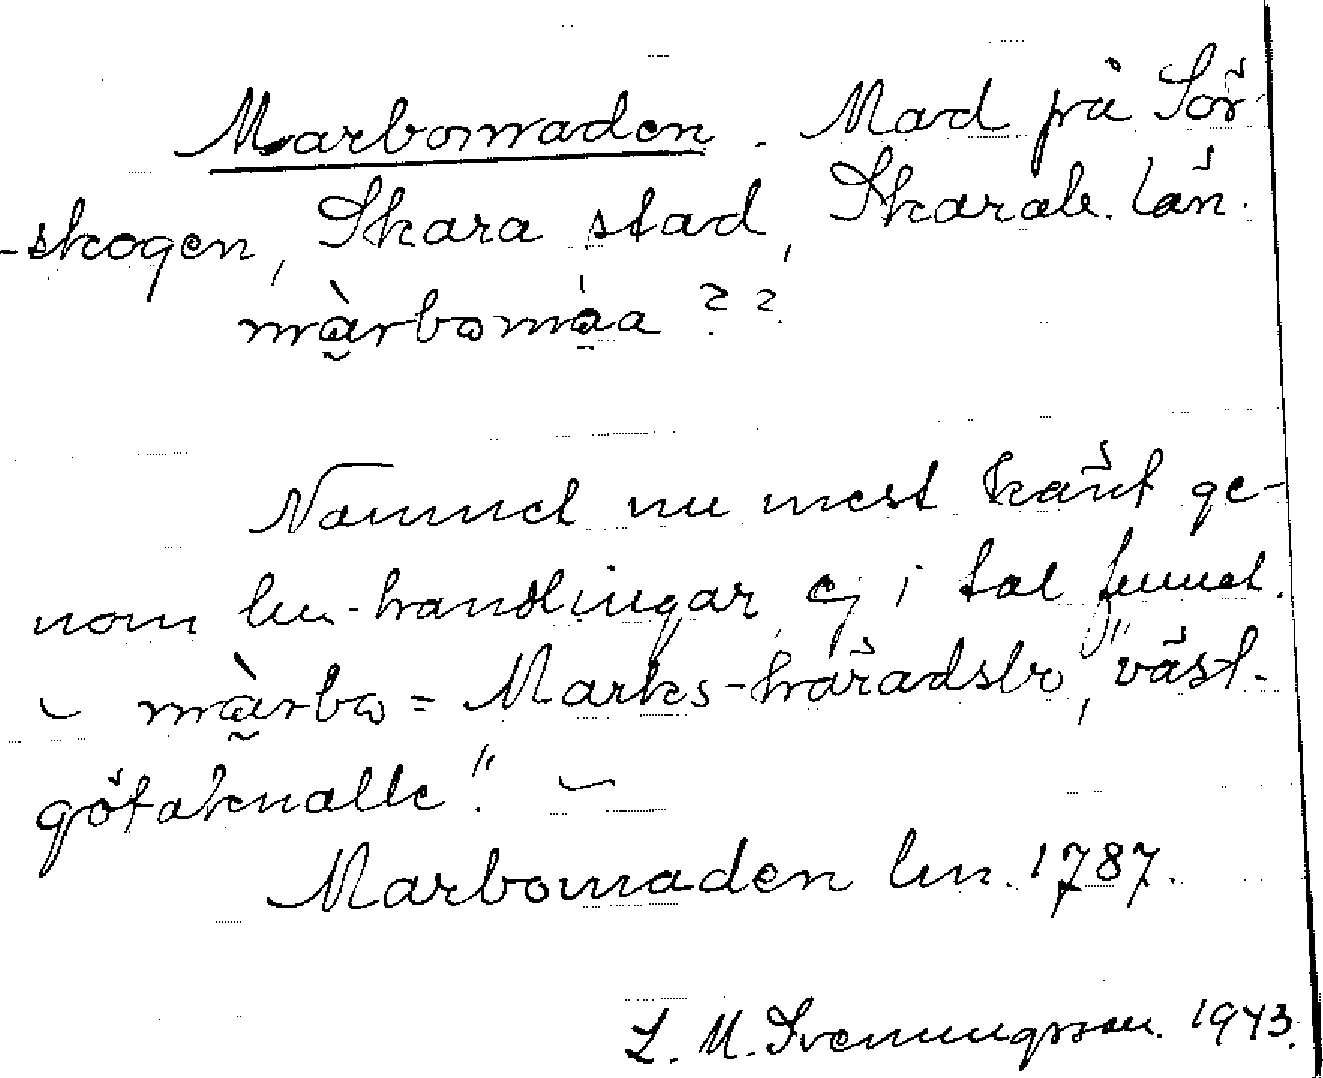 Marbomaden. Mad på Sör-
-skogen, Skara stad, Skarab. län.
màrbomàa ??
Namnet nu mest känt ge-
nom lm-handlingar, ej i tal funnet.
– màrbo = Marks-häradsbo, "väst-
götaknalle". –
Marbomaden lm. 1787.
L. M. Svenungsson. 1943.